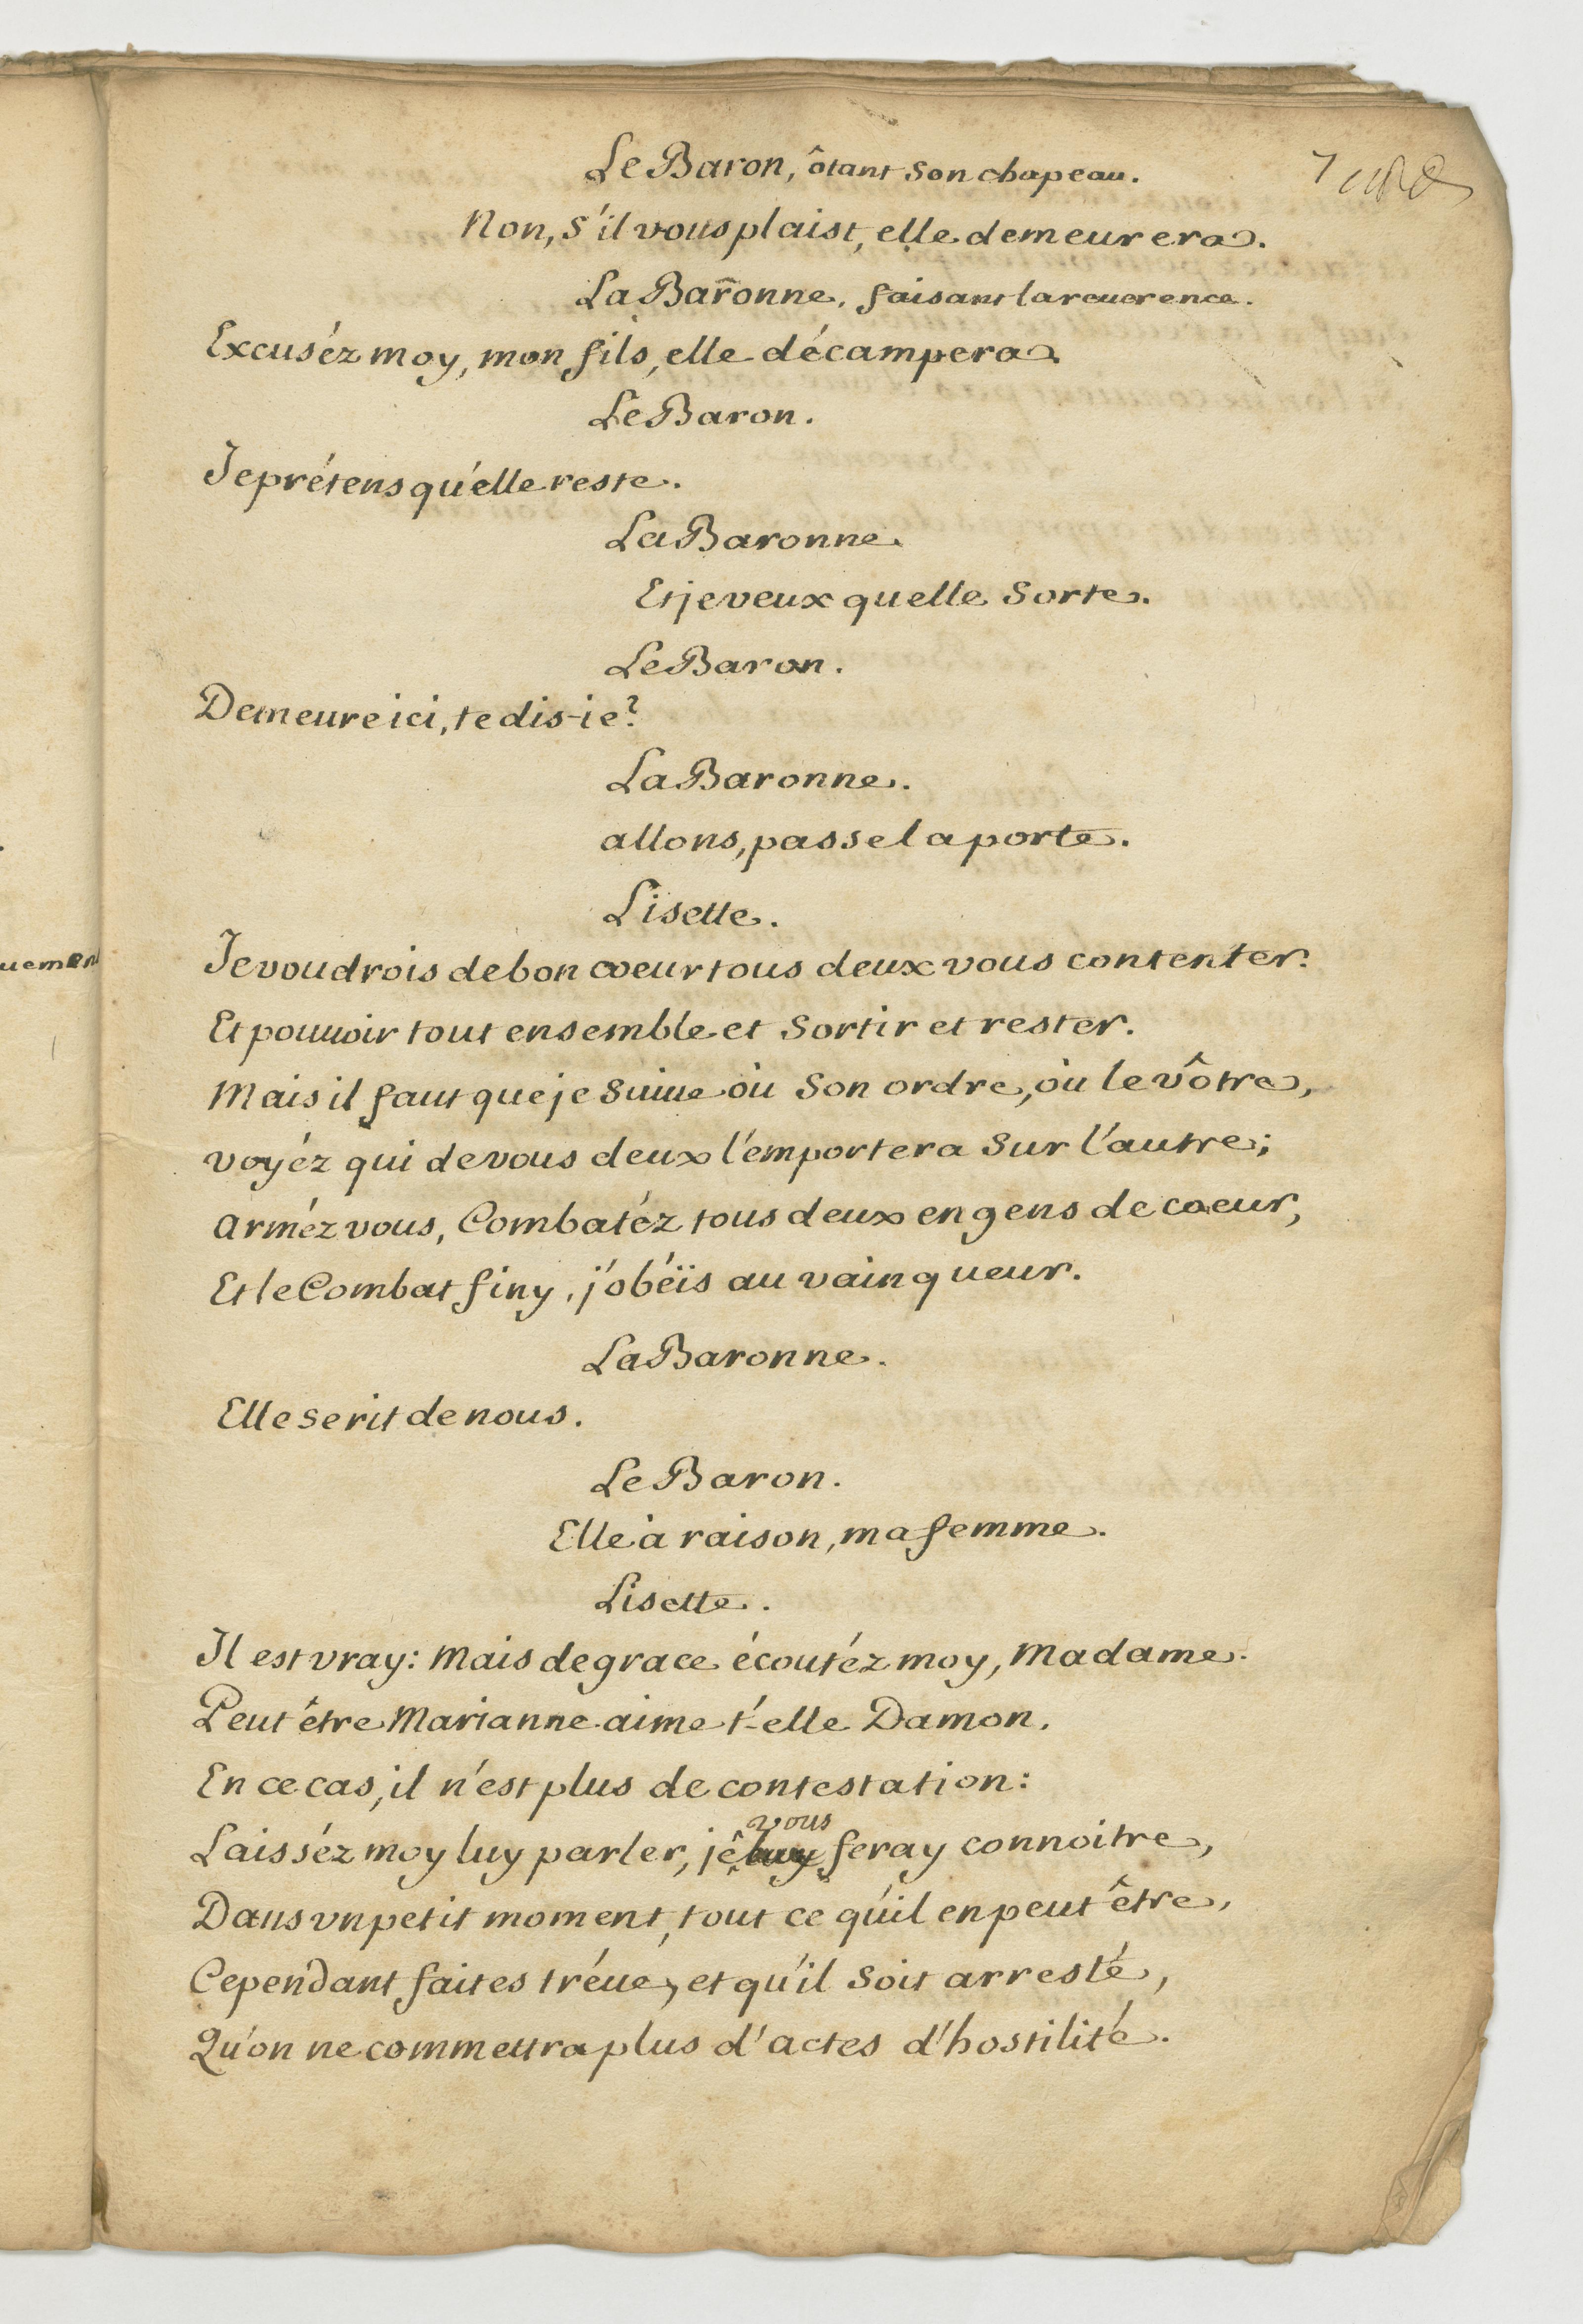 7
Le Baron, ôtant Son chapeau.
Non, S'il vous plaist, elle demeurera.
La Baronne, faisant la reuerence.
Excuséz moy, mon fils, elle décampera.
Le Baron.
Je prétens qu'elle reste.
La Baronne.
Et je veux quelle Sorte.
Le Baron.
Demeure ici, te dis-ie?
La Baronne.
allons, passe la porte.
Lisette.
uement
Je voudrois de bon coeur tous deux vous contenter.
Et pouuoir tout ensemble et Sortir et rester.
Mais il faut que je Suiue où Son ordre, où le vôtre,
voyéz qui de vous deux l'emportera Sur l'autre;
arméz vous, Combatéz tous deux en gens de coeur,
Et le Combat finy, j'obéïs au vainqueur.
La Baronne.
Elle se rit de nous.
Le Baron.
Elle à raison, ma femme.
Lisette.
Il est vray: Mais de grace écoutéz moy, Madame.
Peut être Marianne aime t'-elle Damon.
En ce cas, il n'est plus de contestation:
vous
Laisséz moy luy parler, je luy feray connoitre,
Dans vn petit moment, tout ce qu'il en peut être,
Cependant faites tréue, et qu'il Soit arresté,
Qu'on ne commettra plus d'actes d'hostilité.